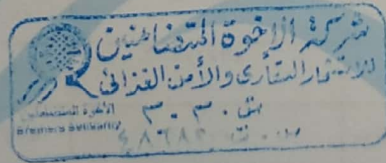 شركة الاخوة المتضامنين
للاستثمار العقاري والأمن الغذائي
ش.م.م
الاخوة المتضامنين
Brothers Solidarity
س.ت